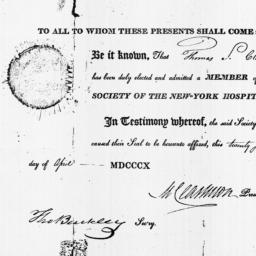 TO ALL TO WHOM THESE PRESENTS SHALL COME
Be it known, That Thomas S. Cl
has been duly elected and admitted a MEMBER of
SOCIETY OF THE NEW-YORK HOSPIT
In Testimony whereof, the said Society
caused their Seal to be hereunto affixed, this twenty
day of April MDCCCX
Pres
Tho Buckley Secry.